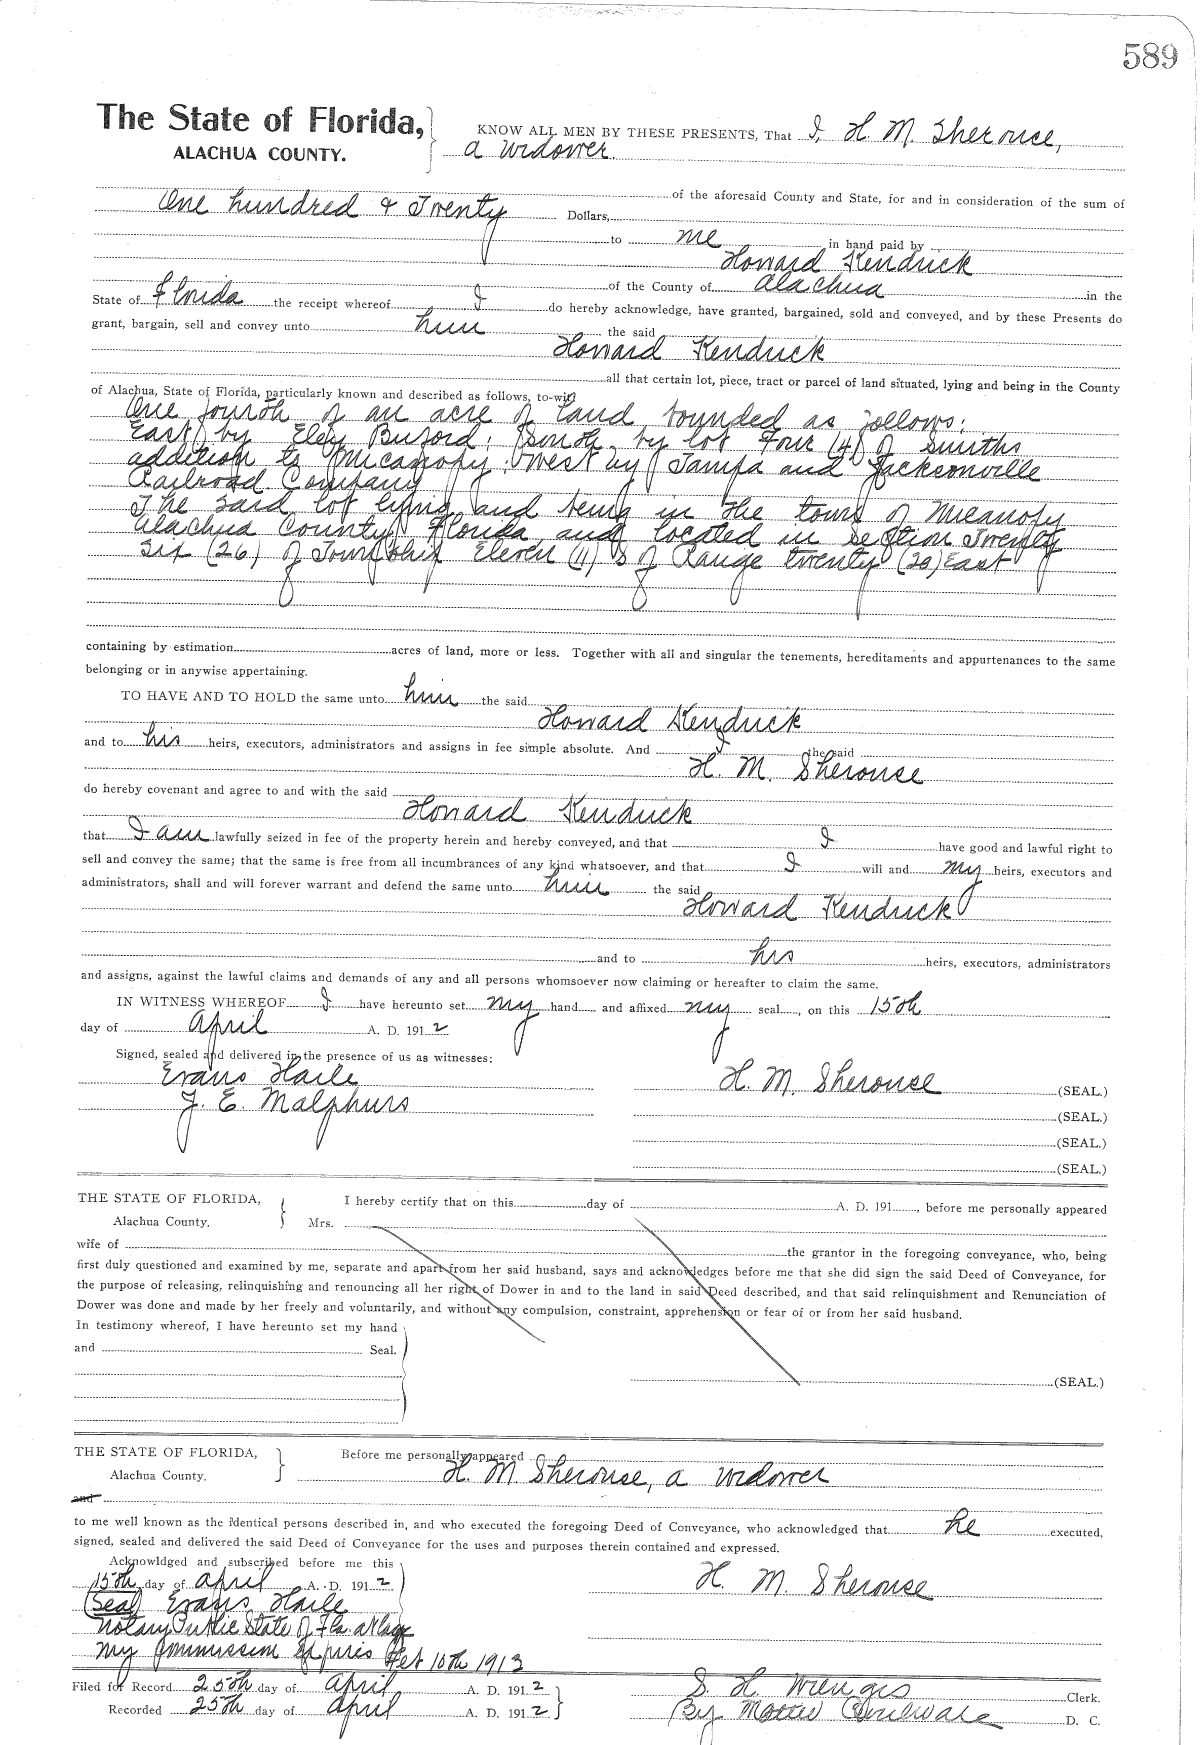 589
The State of Florida,
ALACHUA COUNTY.
KNOW ALL MEN BY THESE PRESENTS, That I, H. M. Sherouse,
a widower
of the aforesaid County and State, for and in consideration of the sum of
One hundred & Twenty Dollars,
to me in hand paid by
Howard Kendrick
of the County of Alachua in the
State of Florida the receipt whereof I do hereby acknowledge, have granted, bargained, sold and conveyed, and by these Presents do
grant, bargain, sell and convey unto him the said
Howard Kendrick
all that certain lot, piece, tract or parcel of land situated, lying and being in the County
of Alachua, State of Florida, particularly known and described as follows, to-wit
One fourth of an acre of land bounded as follows:
East by Eley Buford; South by lot Four (4) of Smiths
addition to Micanopy; West by Tampa and Jacksonville
Railroad Company
The said lot lying and being in the town of Micanopy
Alachua County, Florida and located in section Twenty
Six (26) of Township Eleven (11) S of Range twenty (20) East
containing by estimation acres of land, more or less. Together with all and singular the tenements, hereditaments and appurtenances to the same
belonging or in anywise appertaining.
TO HAVE AND TO HOLD the same unto him the said
Howard Kendrick
and to his heirs, executors, administrators and assigns in fee simple absolute. And I the said
H. M. Sherouse
do hereby covenant and agree to and with the said
Howard Kendrick
that I am lawfully seized in fee of the property herein and hereby conveyed, and that I have good and lawful right to
sell and convey the same; that the same is free from all incumbrances of any kind whatsoever, and that I will and my heirs, executors and
administrators, shall and will forever warrant and defend the same unto him the said
Howard Kendrick
and to his heirs, executors, administrators
and assigns, against the lawful claims and demands of any and all persons whomsoever now claiming or hereafter to claim the same.
IN WITNESS WHEREOF I have hereunto set my hand and affixed my seal, on this 15th
day of April A. D. 1912
Signed, sealed and delivered in the presence of us as witnesses:
Evans Haile
J. E. Malphurs
H. M. Sherouse (SEAL.)
(SEAL.)
(SEAL.)
(SEAL.)
THE STATE OF FLORIDA,
Alachua County.
I hereby certify that on this day of A. D. 191 , before me personally appeared
Mrs.
wife of the grantor in the foregoing conveyance, who, being
first duly questioned and examined by me, separate and apart from her said husband, says and acknowledges before me that she did sign the said Deed of Conveyance, for
the purpose of releasing, relinquishing and renouncing all her right of Dower in and to the land in said Deed described, and that said relinquishment and Renunciation of
Dower was done and made by her freely and voluntarily, and without any compulsion, constraint, apprehension or fear of or from her said husband.
In testimony whereof, I have hereunto set my hand
and Seal.
(SEAL.)
THE STATE OF FLORIDA,
Alachua County.
Before me personally appeared
H. M Sherouse, a widower
and
to me well known as the identical persons described in, and who executed the foregoing Deed of Conveyance, who acknowledged that he executed,
signed, sealed and delivered the said Deed of Conveyance for the uses and purposes therein contained and expressed.
Acknowldged and subscribed before me this
15th day of April A. D. 1912
H. M. Sherouse
(Seal) Evans Haile
Notary Public State of Fla at Large
My Commission Expires Feb 10th 1913
Filed for Record 25th day of April A. D. 1912
Recorded 25th day of April A. D. 1912
S. H. Wienges Clerk.
By Mattie D. C.